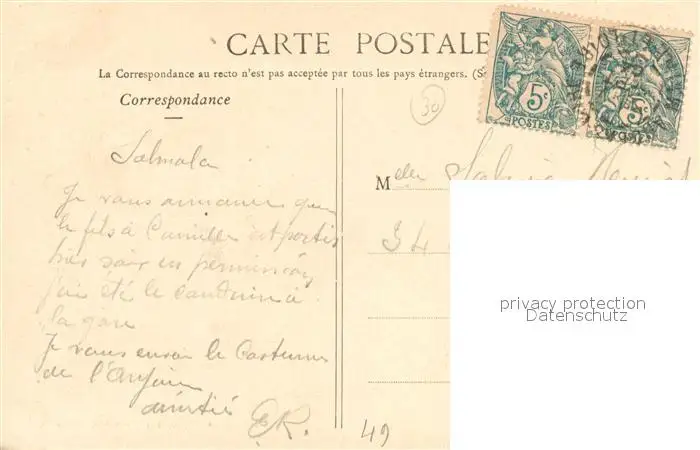 CARTE POSTALE
La Correspondance au recto n'est pas acceptée par tous les pays étrangers. (S
Correspondance
30
5c
POSTES
5c
POSTES
Melle
34
privacy protection
Datenschutz
Je vous annonce que
le fils à Camille est partis
hier soir en
j'ai été le conduire à
la gare
Je vous envoi le Costume
de l'Anjou
amitiés
ER.
49